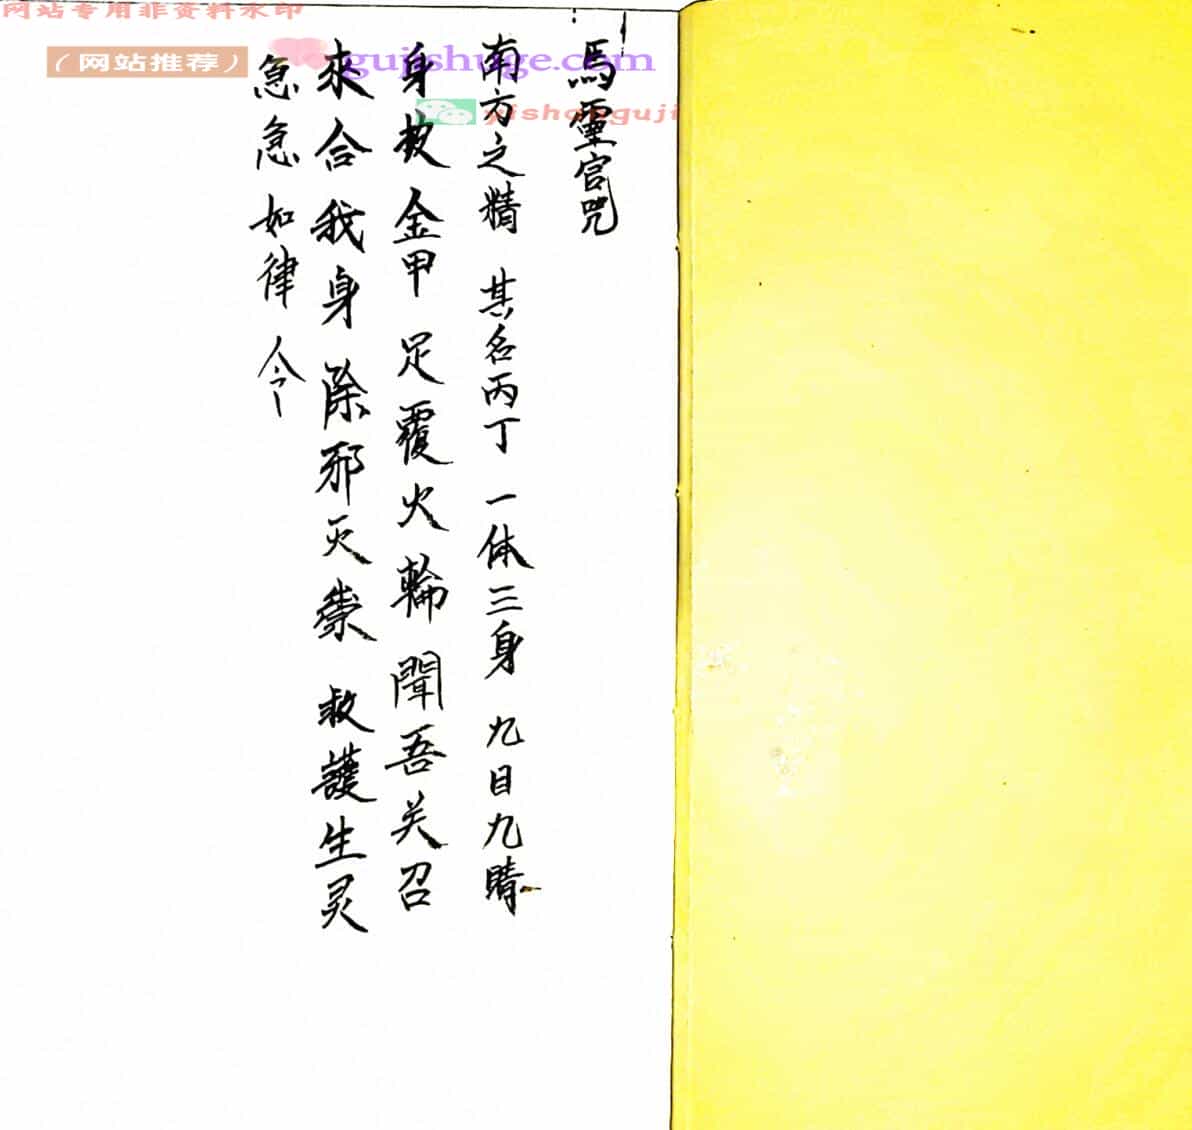 网站专用非资料水印
（网站推荐）
gujishuge.com
馬靈官咒
南方之精 其名丙丁 一体三身 九日九睛
身披金甲 足覆火輪 聞吾关召
來合我身 除邪灭祟 救護生灵
急急如律令